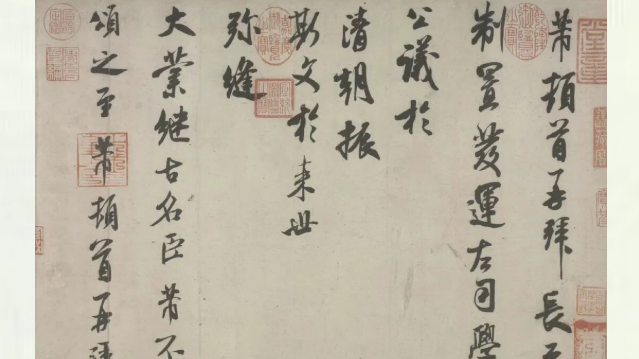 芾頓首再拜長
制置發運左司學
公議於
清朝振
斯文於来世
弥縫
大業継古名臣芾不
頌之至芾頓首再拜